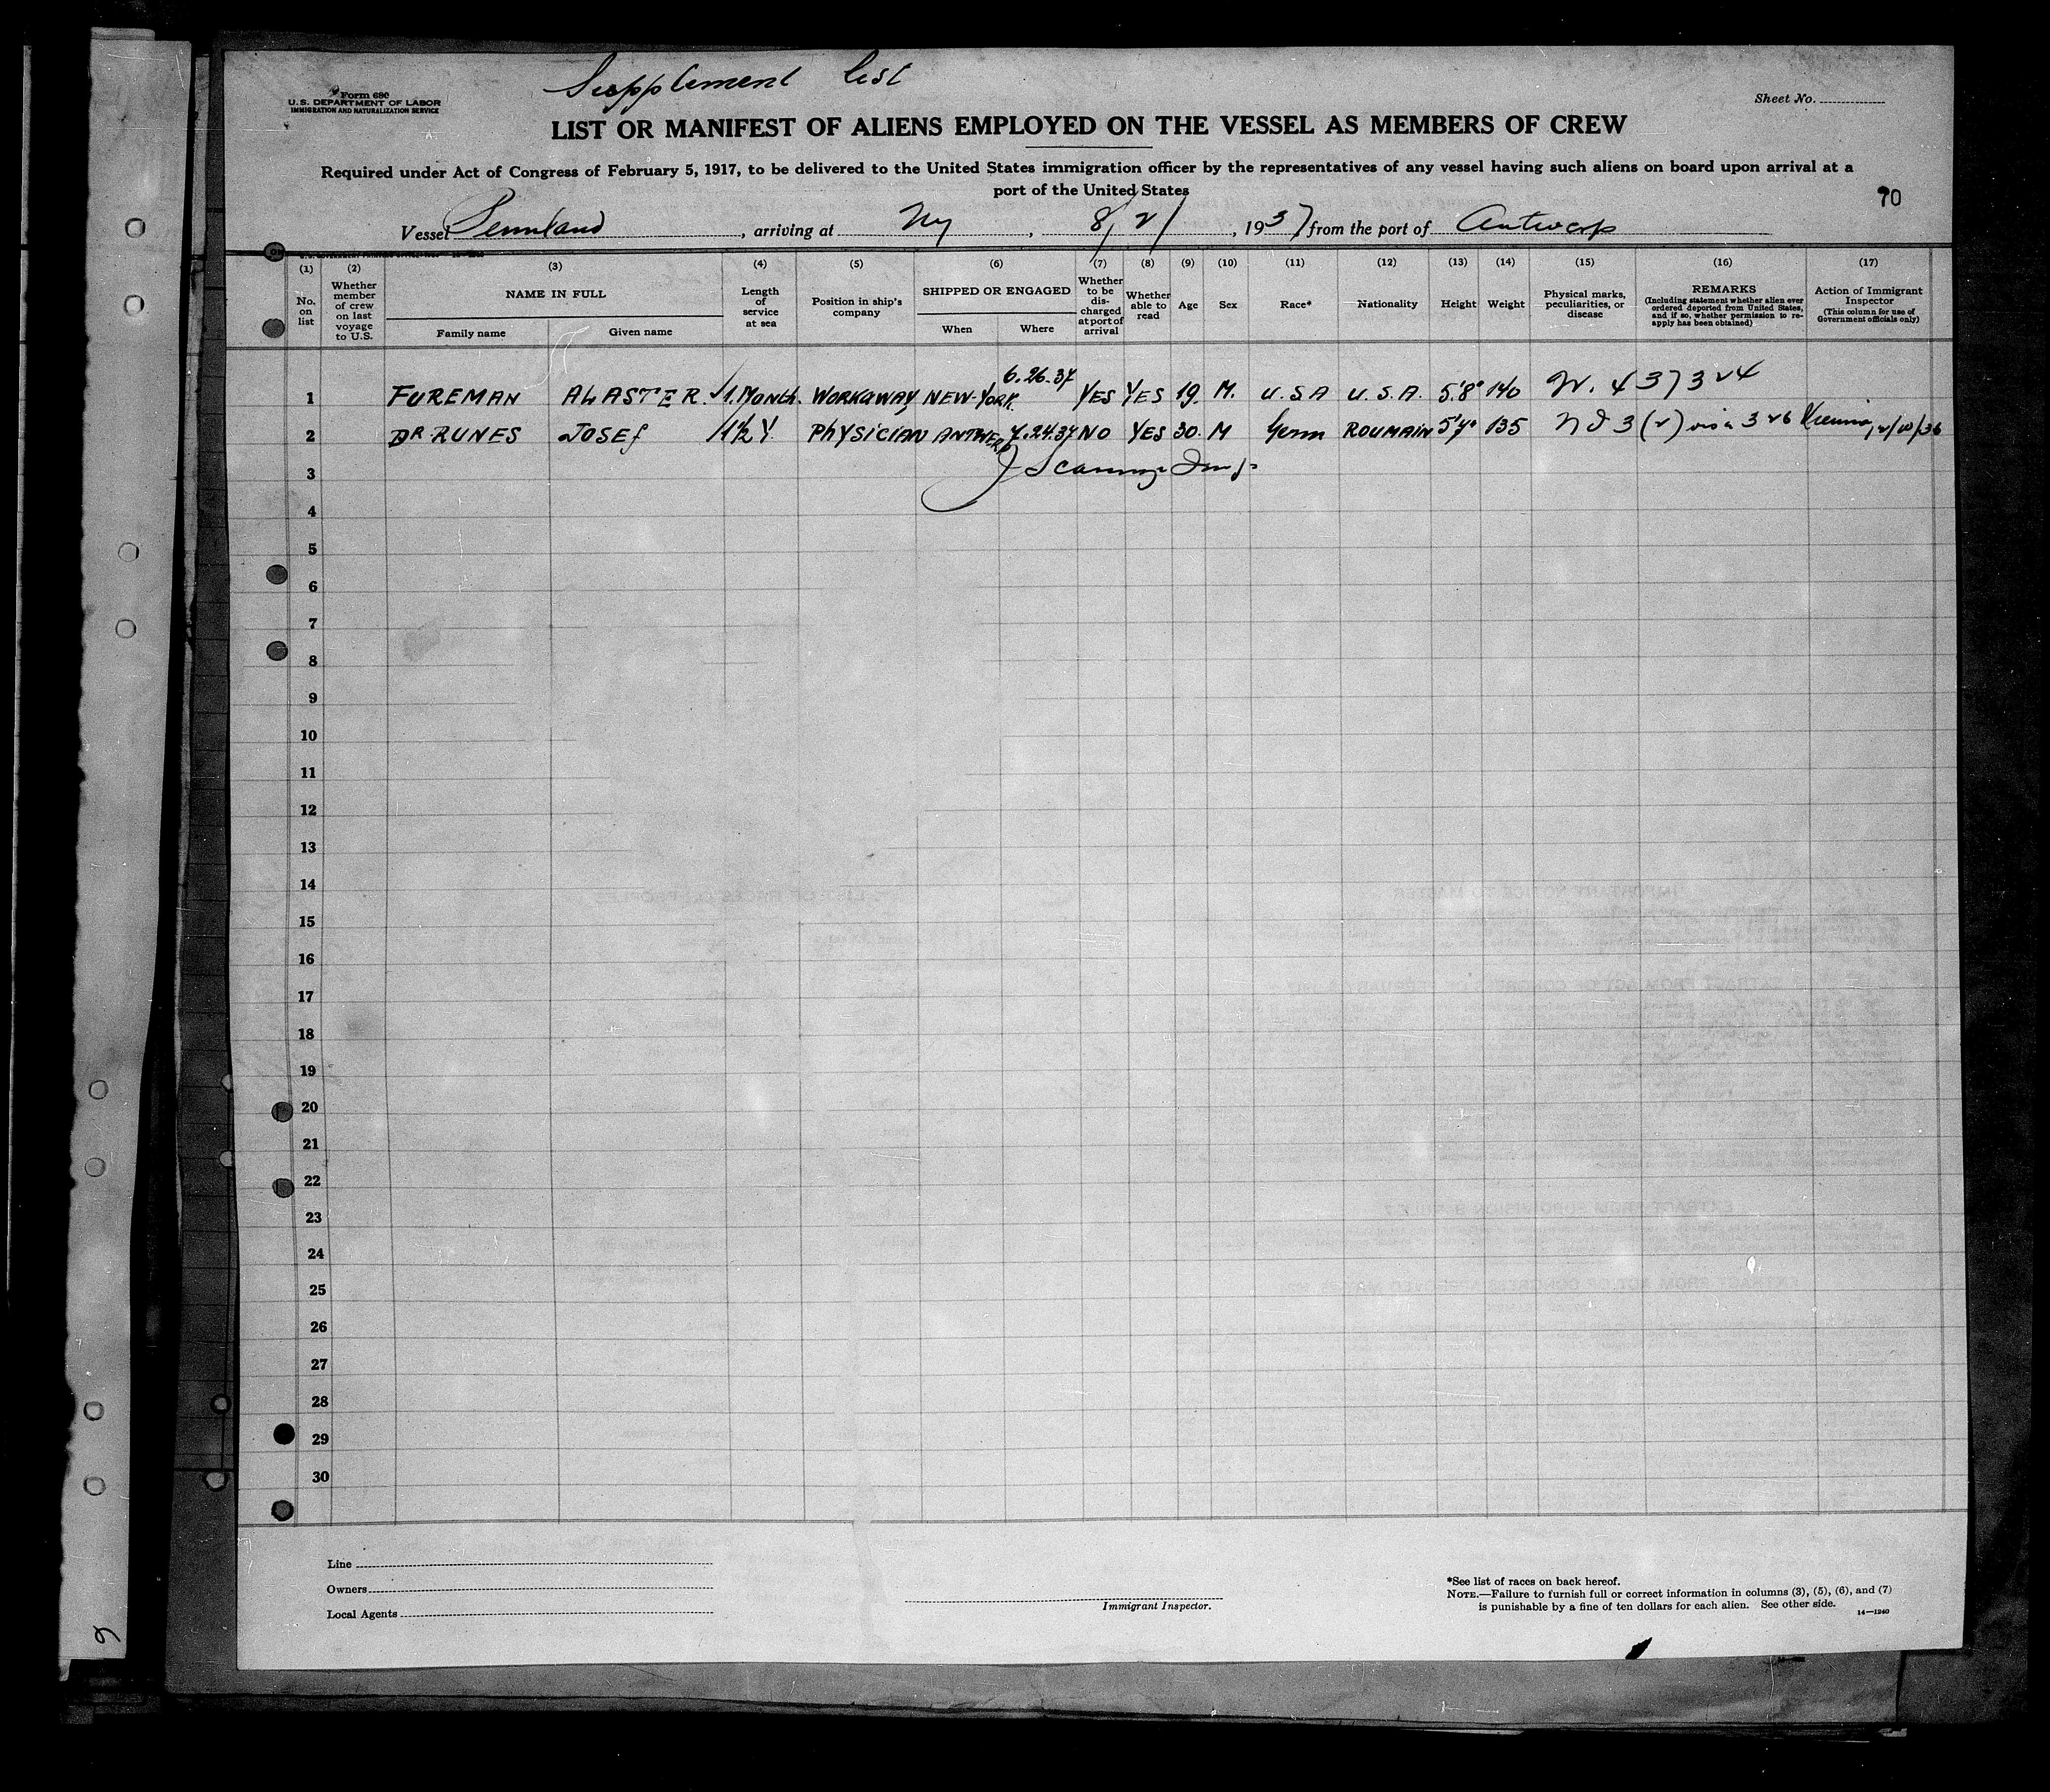 Supplement list
Form 680
U.S. DEPARTMENT OF LABOR
IMMIGRATION AND NATURALIZATION SERVICE
Sheet No.
LIST OR MANIFEST OF ALIENS EMPLOYED ON THE VESSEL AS MEMBERS OF CREW
Required under Act of Congress of February 5, 1917, to be delivered to the United States immigration officer by the representatives of any vessel having such aliens on board upon arrival at a
port of the United States
70
Vessel Pennland, arriving at Ny, 8/2/, 1937 from the port of Antwerp
(1) (2) (3) (4) (5) (6) (7) (8) (9) (10) (11) (12) (13) (14) (15) (16) (17)
No. on list
Whether member of crew on last voyage to U.S.
NAME IN FULL
Family name
Given name
Length of service at sea
Position in ship's company
SHIPPED OR ENGAGED
When
Where
Whether to be discharged at port of arrival
Whether able to read
Age
Sex
Race*
Nationality
Height
Weight
Physical marks, peculiarities, or disease
REMARKS
(Including statement whether alien ever ordered deported from United States, and if so, whether permission to reapply has been obtained)
Action of Immigrant Inspector
(This column for use of Government officials only)
1 FUREMAN ALASTER. 1.Month. WORKAWAY NEW-YORK. 6.26.37 YES YES 19. M. U.S.A U.S.A. 5'8" 140 W. 437324
2 DR. RUNES JOSEf 1½ Y. PhYSiCiAN ANTWERP 7.24.37 NO YES 30. M Germ ROUMAIN 5'7" 135 3 (2) visa 326 Vienna, 2/10/36
3
4
5
6
7
8
9
10
11
12
13
14
15
16
17
18
19
20
21
22
23
24
25
26
27
28
29
30
Line
Owners
Local Agents
Immigrant Inspector.
*See list of races on back hereof.
NOTE.—Failure to furnish full or correct information in columns (3), (5), (6), and (7)
is punishable by a fine of ten dollars for each alien. See other side.
14—1240
9